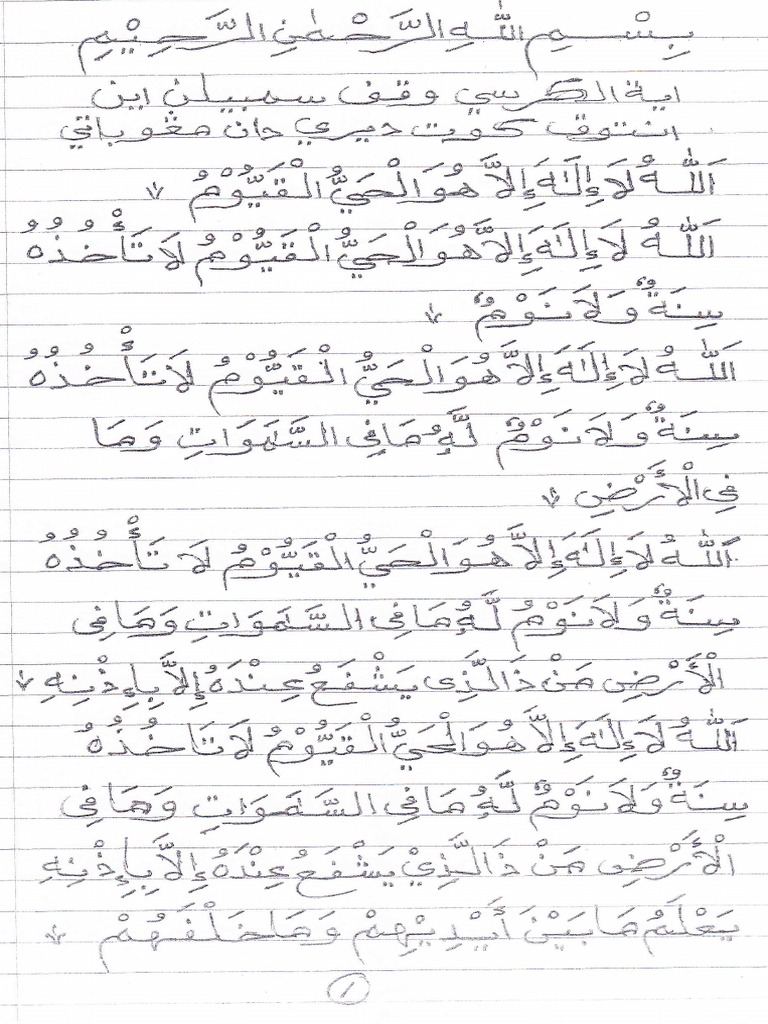 بِسْمِ اللّٰهِ الرَّحْمٰنِ الرَّحِيْمِ
اية الكرسي وقف سمبيلن اين
انتوق كوت ديري دان مڠوباتي
اَللّٰهُ لَاإِلٰهَ إِلاَّ هُوَالْحَيُّ الْقَيُّوْمُ ↓
اَللّٰهُ لَاإِلٰهَ إِلاَّ هُوَالْحَيُّ الْقَيُّوْمُ لَا تَأْخُذُهُ
سِنَةٌ وَلَا نَوْمٌ ↓
اَللّٰهُ لَاإِلٰهَ إِلاَّ هُوَالْحَيُّ الْقَيُّوْمُ لَا تَأْخُذُهُ
سِنَةٌ وَلَا نَوْمٌ لَّهُ مَا فِى السَّمَوَاتِ وَمَا
فِى الْأَرْضِ ↓
اَللّٰهُ لَاإِلٰهَ إِلاَّ هُوَالْحَيُّ الْقَيُّوْمُ لَا تَأْخُذُهُ
سِنَةٌ وَلَا نَوْمٌ لَّهُ مَا فِى السَّمَوَاتِ وَمَا فِى
الْأَرْضِ مَنْ ذَا لَّذِى يَشْفَعُ عِنْدَهُ إِلاَّ بِإِذْنِهِ ↓
اَللّٰهُ لَاإِلٰهَ إِلاَّ هُوَالْحَيُّ الْقَيُّوْمُ لَا تَاخُذُهُ
سِنَةٌ وَلَا نَوْمٌ لَّهُ مَا فِى السَّمَوَاتِ وَمَا فِى
الْأَرْضِ مَنْ ذَا لَّذِيْ يَشْفَعُ عِنْدَهُ إِلاَّ بِإِذْنِهِ
يَعْلَمُ مَا بَيْنَ أَيْدِيْهِمْ وَمَا خَلْفَهُمْ ↓
١